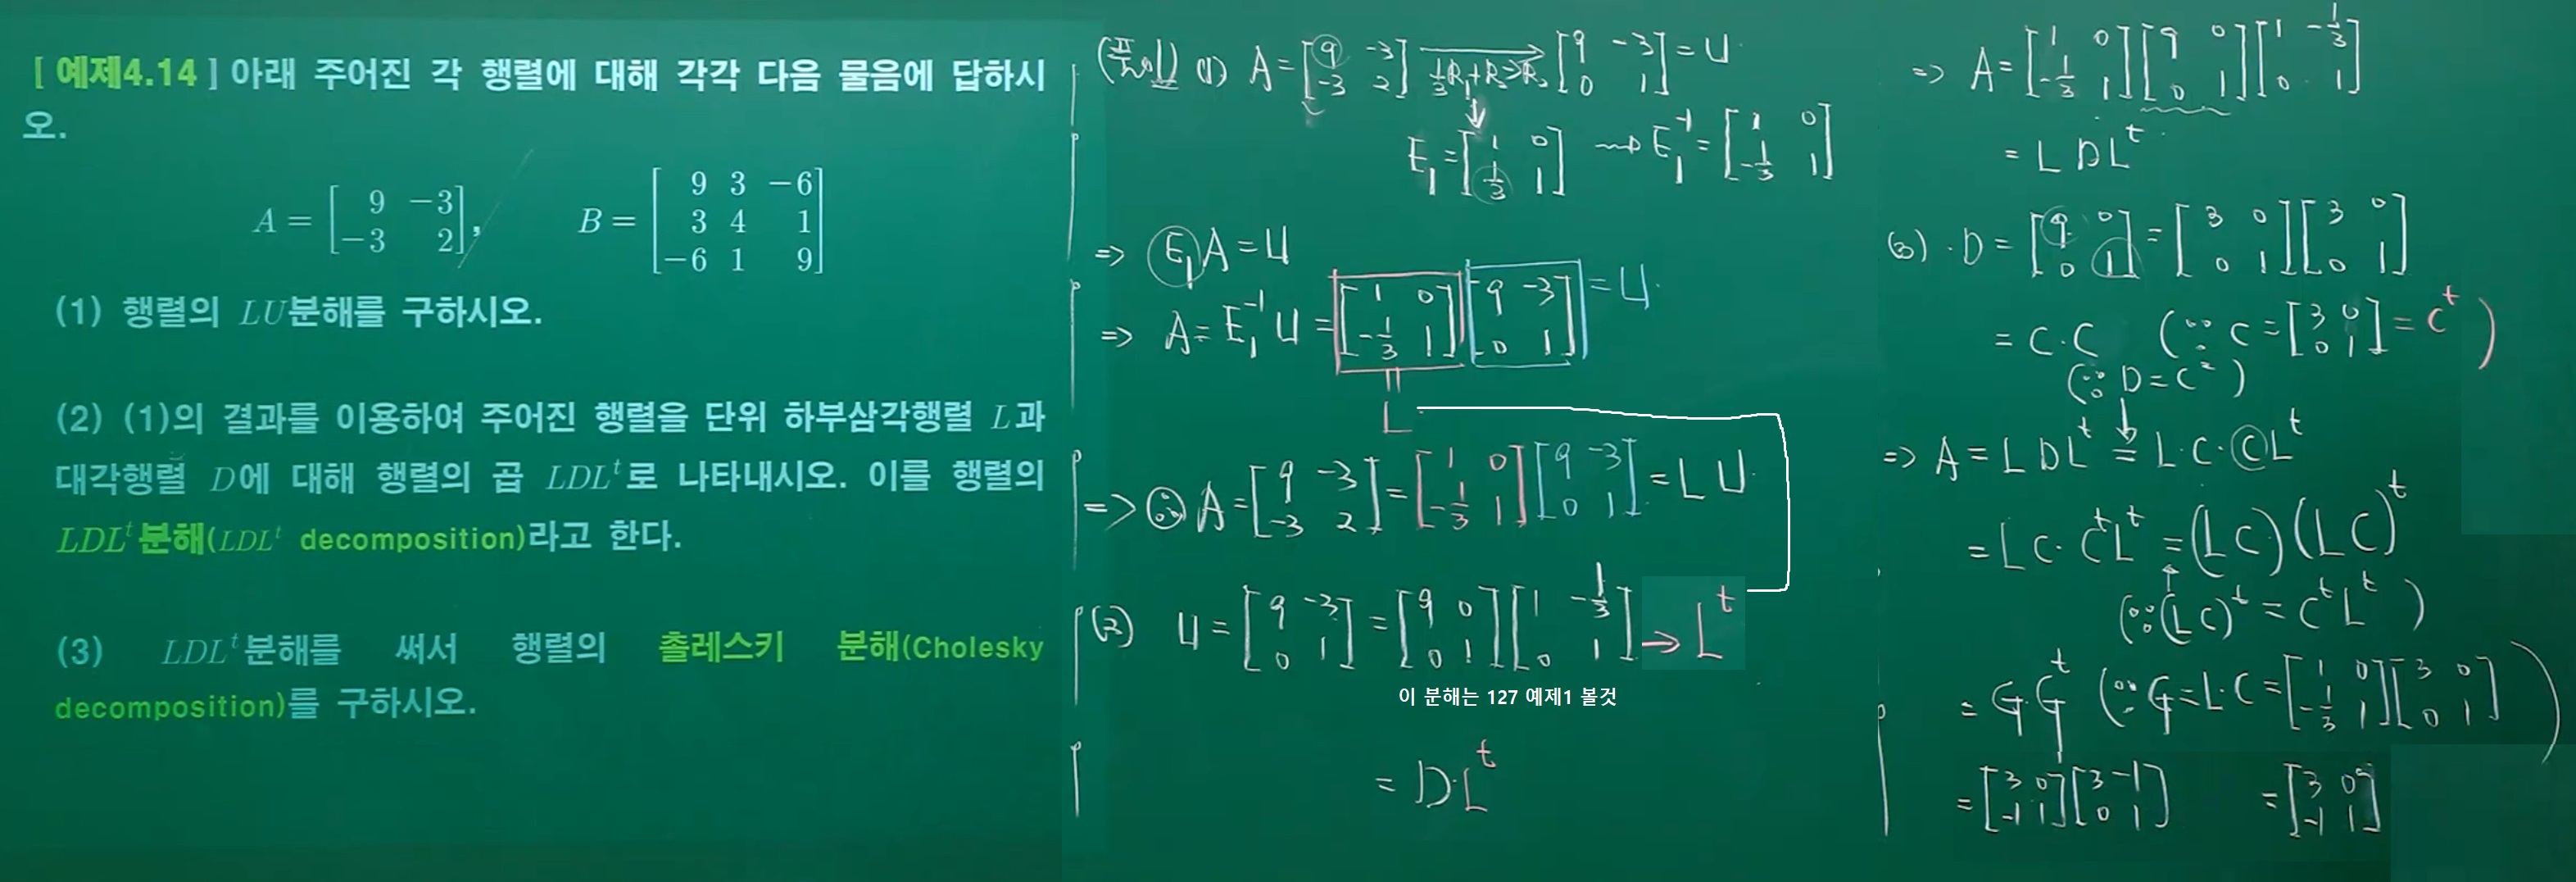 [ 예제4.14 ] 아래 주어진 각 행렬에 대해 각각 다음 물음에 답하시
오.
A = [9 -3; -3 2], B = [9 3 -6; 3 4 1; -6 1 9]
(1) 행렬의 LU분해를 구하시오.
(2) (1)의 결과를 이용하여 주어진 행렬을 단위 하부삼각행렬 L과
대각행렬 D에 대해 행렬의 곱 LDL^t로 나타내시오. 이를 행렬의
LDL^t분해(LDL^t decomposition)라고 한다.
(3) LDL^t분해를 써서 행렬의 촐레스키 분해(Cholesky
decomposition)를 구하시오.
(풀이) (1) A = [9 -3; -3 2] → [9 -3; 0 1] = U
1/3 R₁+R₂→R₂
E₁ = [1 0; 1/3 1] ⇝ E₁^-1 = [1 0; -1/3 1]
⇒ E₁A = U
⇒ A = E₁^-1 U = [1 0; -1/3 1] [9 -3; 0 1] = U
=
L
⇒ ∴ A = [9 -3; -3 2] = [1 0; -1/3 1] [9 -3; 0 1] = LU
(2) U = [9 -3; 0 1] = [9 0; 0 1] [1 -1/3; 0 1] → L^t
이 분해는 127 예제1 볼것
= D·L^t
⇒ A = [1 0; -1/3 1] [9 0; 0 1] [1 -1/3; 0 1]
= L D L^t
(3) · D = [9 0; 0 1] = [3 0; 0 1] [3 0; 0 1]
= C·C (∵ C = [3 0; 0 1] = C^t)
(∵ D = C²)
⇒ A = L D L^t = L·C·C L^t
= L C · C^t L^t = (LC)(LC)^t
(∵ (LC)^t = C^t L^t)
= G·G^t (∵ G = L·C = [1 0; -1/3 1] [3 0; 0 1]
= [3 0; -1 1] [3 -1; 0 1] = [3 0; -1 1])